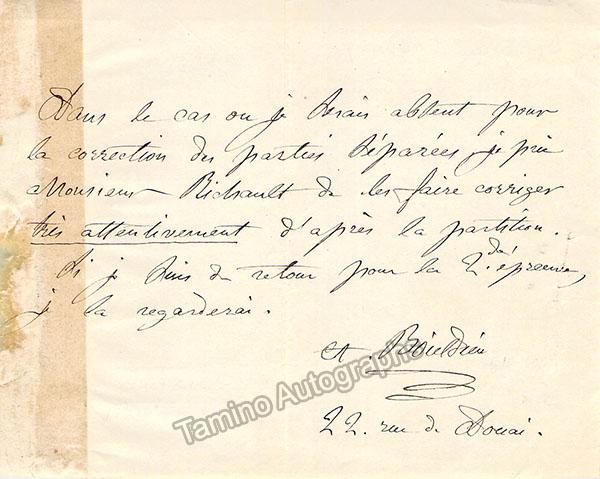 Dans le cas ou je serais absent pour
la correction des parties séparées je prie
Monsieur Richault de les faire corriger
très attentivement d'après la partition.
Si je suis de retour pour la 2.de épreuve,
je la regarderai.
A. Boieldieu
22. rue de Douai.
Tamino Autographs